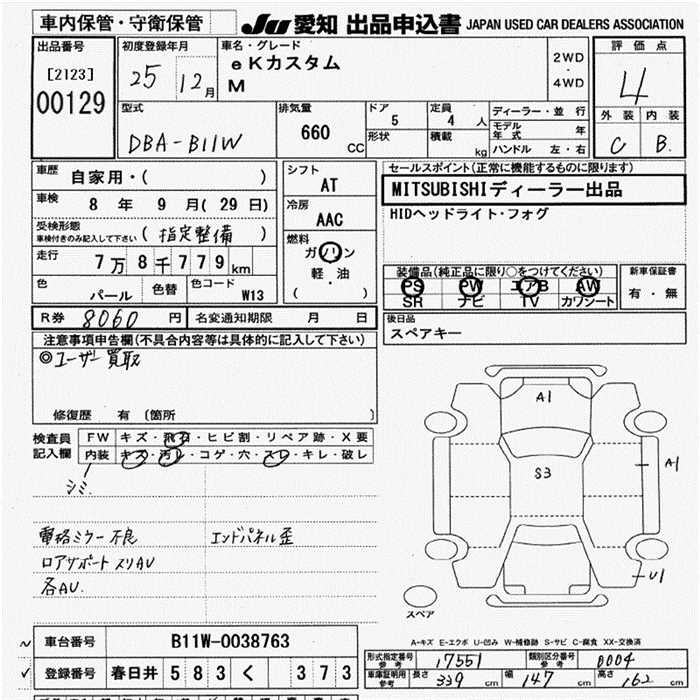 車内保管・守衛保管
JU 愛知 出品申込書 JAPAN USED CAR DEALERS ASSOCIATION
出品番号
[2123]
00129
初度登録年月
25 12月
車名・グレード
eKカスタム
M
2WD
・
4WD
評価点
4
外装 内装
C B.
型式
DBA-B11W
排気量
660 CC
ドア
5
形状
定員
4 人
積載
kg
ディーラー・並行
モデル年式 年
ハンドル 左・右
車歴 自家用・( )
車検 8 年 9 月( 29 日)
受検形態
車検付きのみ記入して下さい ( 指定整備 )
走行 7万8千779km
色 パール
色替
色コード W13
シフト
AT
冷房
AAC
燃料
ガソリン
軽・油
( )
セールスポイント(正常に機能するものに限ります)
MITSUBISHIディーラー出品
HIDヘッドライト・フォグ
装備品(純正品に限り○をつけてください)
PS PW エアB AW
SR ナビ TV カワシート
新車保証書
有・無
R券 8060 円 名変通知期限 月 日
後日品
スペアキー
注意事項申告欄(不具合内容等は具体的に記入して下さい)
◎ユーザー買取
修復歴 有 〔箇所 〕
検査員
記入欄
FW キズ・飛石・ヒビ割・リペア跡・X要
内装 キズ・汚レ・コゲ・穴・スレ・キレ・破レ
シミ
電格ミラー不良 エンドパネル歪
ロアサポート スリAU
各AU.
A1
S3
A1
U1
スペア
A-キズ E-エクボ U-凹み W-補修跡 S-サビ C-腐食 XX-交換済
車台番号 B11W-0038763
登録番号 春日井 583 く 373
形式指定番号
参考
17551
類別区分番号
参考
0004
車庫証明用
参考
長さ 339 cm 幅 147 cm 高さ 162 cm